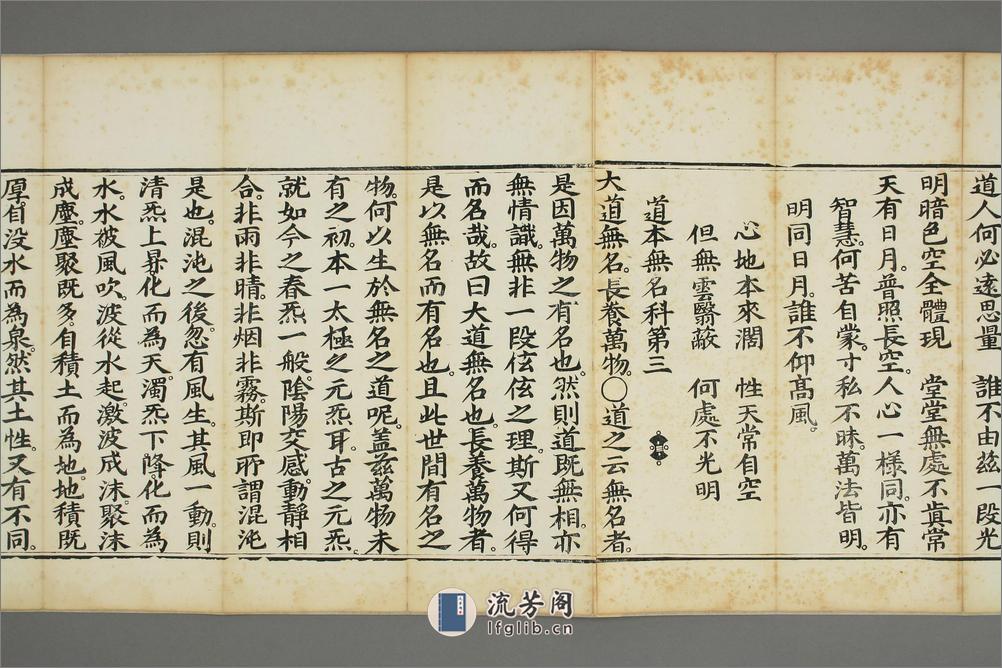 道人何必遠思量　誰不由茲一段光
明暗色空全體現　堂堂無處不真常
天有日月。普照長空。人心一樣同。亦有
智慧。何苦自蒙。寸私不昧。萬法皆明。
明同日月。誰不仰高風。
心地本來濶　性天常自空
但無雲翳蔽　何處不光明
道本無名科第三
大道無名。長養萬物。〇道之云無名者。
是因萬物之有名也。然則道既無相。亦
無情識。無非一段伭伭之理。斯又何得
而名哉。故曰大道無名也。長養萬物者。
是以無名而有名也。且此世間有名之
物。何以生於無名之道呢。蓋茲萬物未
有之初。本一太極之元炁耳。古之元炁。
就如今之春炁一般。陰陽交感。動靜相
合。非雨非晴。非烟非霧。斯即所謂混沌
是也。混沌之後。忽有風生。其風一動。則
清炁上昇。化而為天。濁炁下降。化而為
水。水被風吹。波從水起。激波成沫。聚沫
成塵。塵聚既多。自積土而為地。地積既
厚。自沒水而為泉。然其土性。又有不同。
流芳阁
lfglib.cn